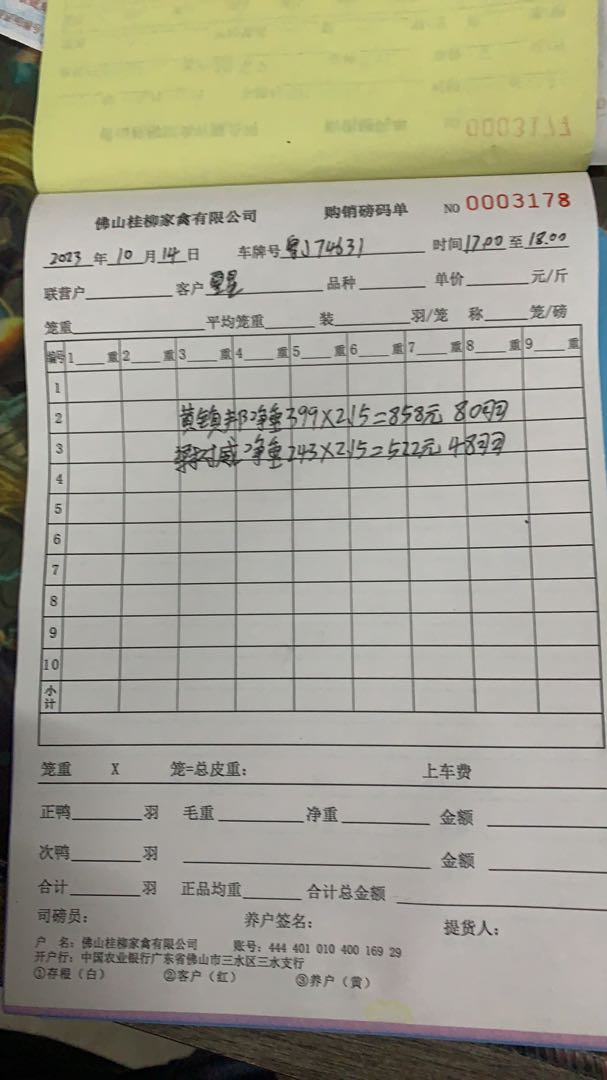 0003177
佛山桂柳家禽有限公司 购销磅码单 NO 0003178
2023年10月14日 车牌号粤J74631 时间17.00至18.00
联营户 客户 品种 单价 元/斤
笼重 平均笼重 装 羽/笼 称 笼/磅
编号 1 重 2 重 3 重 4 重 5 重 6 重 7 重 8 重 9 重
1
2 黄镇邦净重399×2.15=858元 80羽
3 威净重243×2.15=522元 48羽
4
5
6
7
8
9
10
小计
笼重 X 笼=总皮重: 上车费
正鸭 羽 毛重 净重 金额
次鸭 羽 金额
合计 羽 正品均重 合计总金额
司磅员: 养户签名: 提货人:
户 名:佛山桂柳家禽有限公司 账号:444 401 010 400 169 29
开户行:中国农业银行广东省佛山市三水区三水支行
①存根(白) ②客户(红) ③养户(黄)